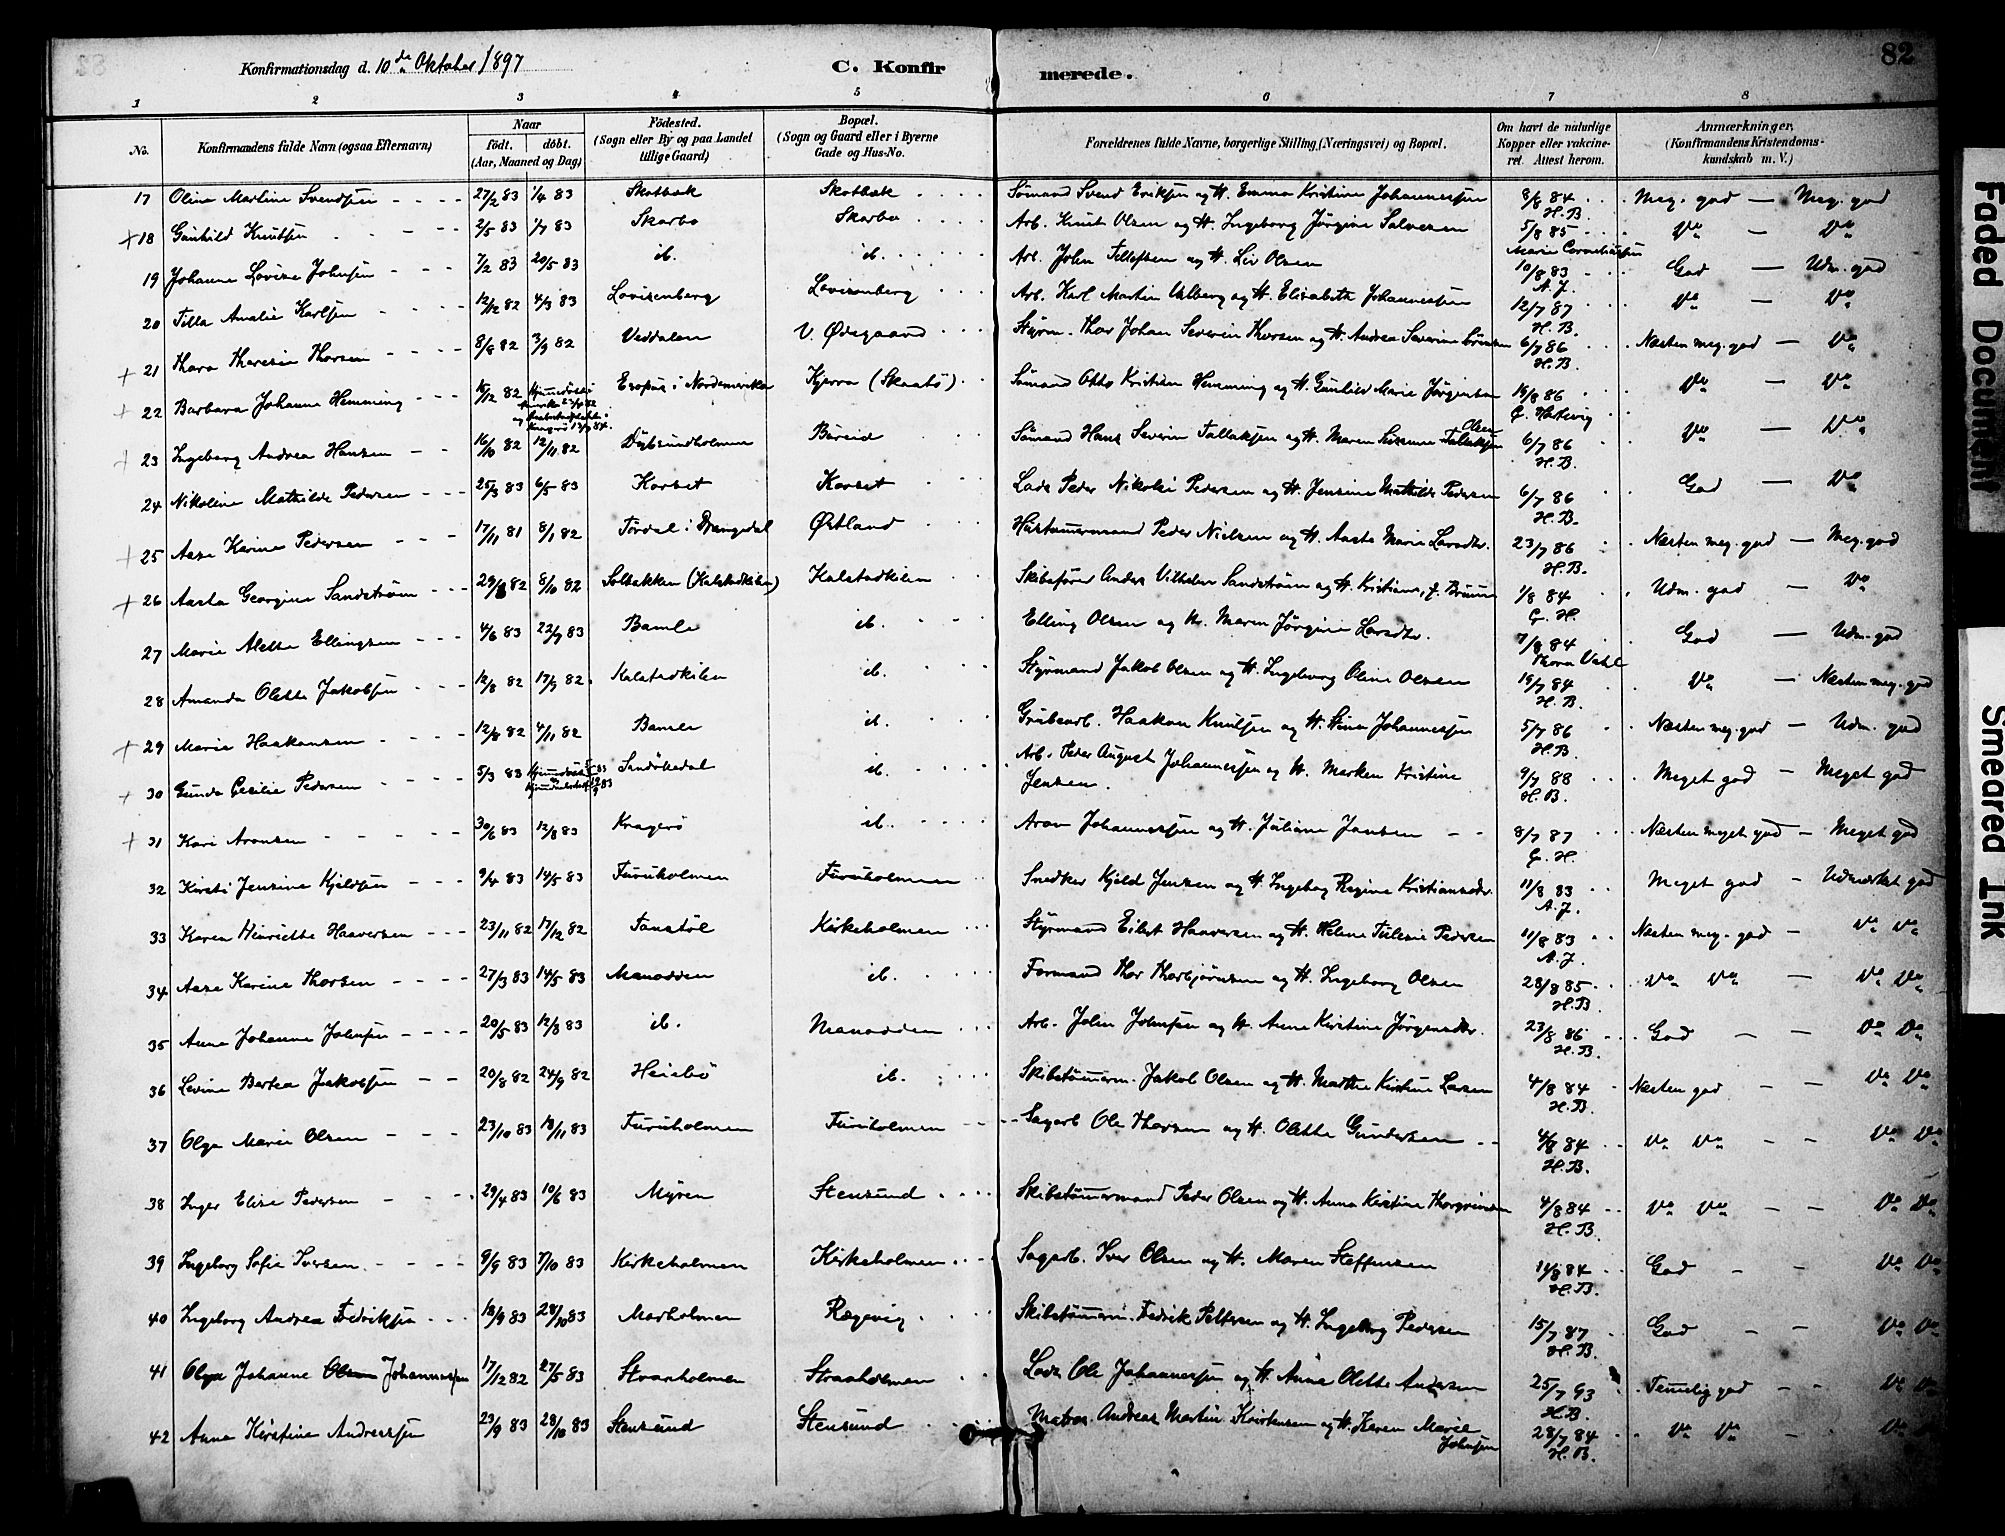 Konfirmationsdag d. 10de Oktober 1897
C. Konfirmerede.
82
1 2 3 4 5 6 7 8
No. Konfirmandens fulde Navn (ogsaa Efternavn) Naar födt. döbt. (Aar, Maaned og Dag) Födested. (Sogn eller By og paa Landet tillige Gaard) Bopæl. (Sogn og Gaard eller i Byerne Gade og Hus-No. Forældrenes fulde Navne, borgerlige Stilling (Næringsvei) og Bopæl. Om havt de naturlige Kopper eller vakcineret. Attest herom. Anmærkninger. (Konfirmandens Kristendomskundskab m. V.)
17 Oline Martine Svendsen 27/2 83 1/4 83 Skotbæk Skotbæk Sömand Svend Eriksen og H. Emma Kristine Johannessen 8/8 84 H.B. Meg. god — Meg. god
+18 Gunhild Knutsen 2/5 83 1/7 83 Skarbo Skarbo Arb. Knut Olsen og H. Ingeborg Jörgine Salvesen 5/8 85 Marie Corneliussen Do — Do
19 Johanne Lovise Johnsen 7/2 83 20/5 83 ib. ib. Arb. John Tellefsen og H. Liv Olsen 10/8 83 A.J. God — Udm. god
20 Tilla Amalie Karlsen 12/12 82 4/3 83 Lovisenberg Lovisenberg Arb. Karl Martin Valberg og H. Elisabeth Johannessen 12/7 87 H.B. Do — Do
+ 21 Thora Theresie Thorsen 8/8 82 3/9 82 Veddalen V. Ødegaard Styrm. Thor Johan Severin Thorsen og H. Andrea Severine 6/7 86 H.B. Næsten meg. god — Do
+ 22 Barbara Johanne Hemming 82 Esopus i Nordamerika Kjerra (Skaatö) Sömand Otto Kristian Hemming og H. Gunhild Marie Jörgensen 86 G. Hartvig Do — Do
+ 23 Ingeborg Andrea Hansen 16/10 82 12/11 82 Dybsundholmen Böreid Sömand Hans Severin Tallaksen og H. Maren Susanne Olsen 6/7 86 H.B. Do — Do
24 Nikoline Mathilde Pedersen 25/3 83 6/5 83 Korset Korset Lods Peder Nikolai Pedersen og H. Jensine Mathilde Pedersen 6/7 86 H.B. God — Do
+ 25 Aase Karine Pedersen 17/11 81 8/1 82 Tördal i Drangedal Østland Hustömmermand Peder Nielsen og H. Aaste Marie Larsdtr. 23/7 86 H.B. Næsten meg. god — Meg. god
+ 26 Aasta Georgine Sandström 29/8 82 8/10 82 Solbakken (Kalstadkilen) Kalstadkilen Skibsförer Anders Vilhelm Sandström og H. Kristiane, f. Bruun 1/8 84 G.H. Udm. god — Do
27 Marie Alette Ellingsen 4/6 83 22/7 83 Bamle ib. Elling Olsen og H. Maren Jörgine Larsdtr. 7/8 84 Thora Vahl God — Udm. god
28 Amanda Olette Jakobsen 12/8 82 17/9 82 Kalstadkilen ib. Styrmand Jakob Olsen og H. Ingeborg Oline Olsen 15/7 84 H.B. Do — Næsten meg. god
+ 29 Marie Haakonsen 12/8 82 4/11 82 Bamle ib. Grubearb. Haakon Knutsen og H. Stina Johannessen 5/7 86 H.B. Næsten meg. god — Udm. god
+ 30 Gunda Cecilie Pedersen 5/3 83 Sandökedal ib. Arb. Peder August Johannessen og H. Marken Kristine Jensen. 9/7 88 H.B. Meget god — Meget god
+ 31 Kari Aronsen 30/6 83 12/8 83 Kragerö ib. Aron Johannessen og H. Juliane Jansen 8/7 87 G.H. Næsten meget god — Meget god
32 Kirsti Jensine Kjeldsen 9/4 83 14/5 83 Furuholmen Furuholmen Snedker Kjeld Jensen og H. Ingeborg Regine Kristiansdtr. 11/8 83 A.J. Meget god — Udmærket god
33 Karen Henriette Haaversen 23/11 82 17/12 82 Tangtöl Kirkeholmen Styrmand Eilert Haaversen og H. Helene Pedersen 11/8 83 A.J. Næsten meg. god — Do Do
34 Aase Karine Thorsen 27/3 83 14/5 83 Manodden ib. Formand Thor Thorbjörnsen og H. Ingeborg Olsen 28/8 85 H.B. Do Do — Do Do
35 Anna Johanne Johnsen 20/5 83 12/8 83 ib. Manodden Arb. John Johnsen og H. Anne Kirstine Jörgensdtr. 23/8 86 H.B. God — Do Do
36 Levine Bertea Jakobsen 20/8 82 24/9 82 Heisbö ib. Skibstömerm. Jakob Olsen og H. Marthe Kirstine Larsen 4/8 84 H.B. Næsten god — Do Do
37 Olga Marie Olsen 23/10 83 18/11 83 Furuholmen Furuholmen Sagarb. Ole Thorsen og H. Olette Gundersen 4/8 84 H.B. Do Do — Do Do
38 Inger Elise Pedersen 29/4 83 10/6 83 Myren Stensund Skibstömmermand Peder Olsen og H. Anna Kirstine Thorgrimsen 4/8 84 H.B. Do Do — Do Do
39 Ingeborg Sofie Iversen 9/9 83 7/10 83 Kirkeholmen Kirkeholmen Sagarb. Iver Olsen og H. Maren Steffensen 14/8 84 H.B. God — Do Do
40 Ingeborg Andrea Fredriksen 18/9 83 28/10 83 Morholmen Rægevig Skibstömerm. Fredrik Pettersen og H. Ingeborg Pedersen 15/7 87 H.B. God — Do Do
41 Olga Johanne Olsen Johannessen 17/12 82 27/5 83 Straaholmen Straaholmen Lods Ole Johannessen og H. Anne Olette Andersen 25/7 93 H.B. Temmelig god — Do Do
42 Anna Kirstine Andreassen 23/9 83 28/10 83 Stensund Stensund Matros Andreas Martin Kristensen og H. Karen Marie Johnsen 28/7 84 H.B. Do Do — Do
Faded Document
Smeared Ink